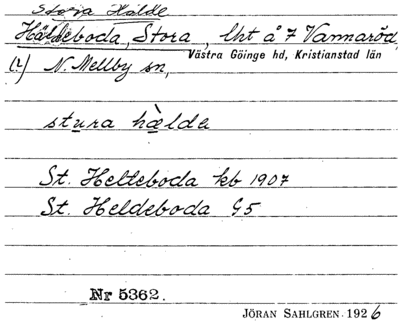 Stora Hälde
Häldeboda, Stora, lht å 7 Vannaröd,
Västra Göinge hd, Kristianstad län
(?) N. Mellby sn,
stura hælda
St. Helteboda kb 1907
St. Heldeboda G5
Nr 5362.
JÖRAN SAHLGREN 1926